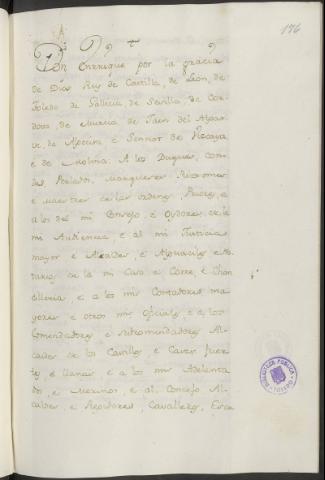 176
Don Enrrique por la gracia
de Dios Rey de Castilla, de Leon, de
Toledo de Gallicia de Sevilla, de Cor
dova, de Murcia de Jaen del Algar
ve, de Algecira, e Sennor de Vizcaya,
e de Molina. A los Duques, Con
des, Perlados, Marqueses Ricosomes
e Maestres de las ordenes, Priores, e
a los del mi Consejo, e Oydores de la
mi Audiencia, e al mi Justicia
mayor e Alcaldes, e Alguaciles e No
tarios de la mi Casa e Corte, e Chan
cilleria, e a los mis Contadores ma
yores e otros mis Oficiales, e a los
Comendadores e subcomendadores Al
caides de los Castillos e Casas fuer
tes, e llanas e a los mis Adelanta
dos, e Merinos, e al Concejo Al
caldes, e Regidores, Cavalleros, Escu
BIBLIOTECA PUBLICA
TOLEDO